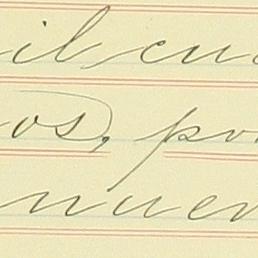 il cu
os, po
nuev